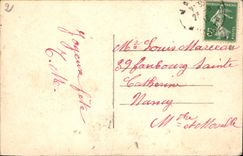 Joyeuse fête
Mr Louis Marceau
89 faubourg Sainte
Catherine
Nancy
Mthe et Moselle